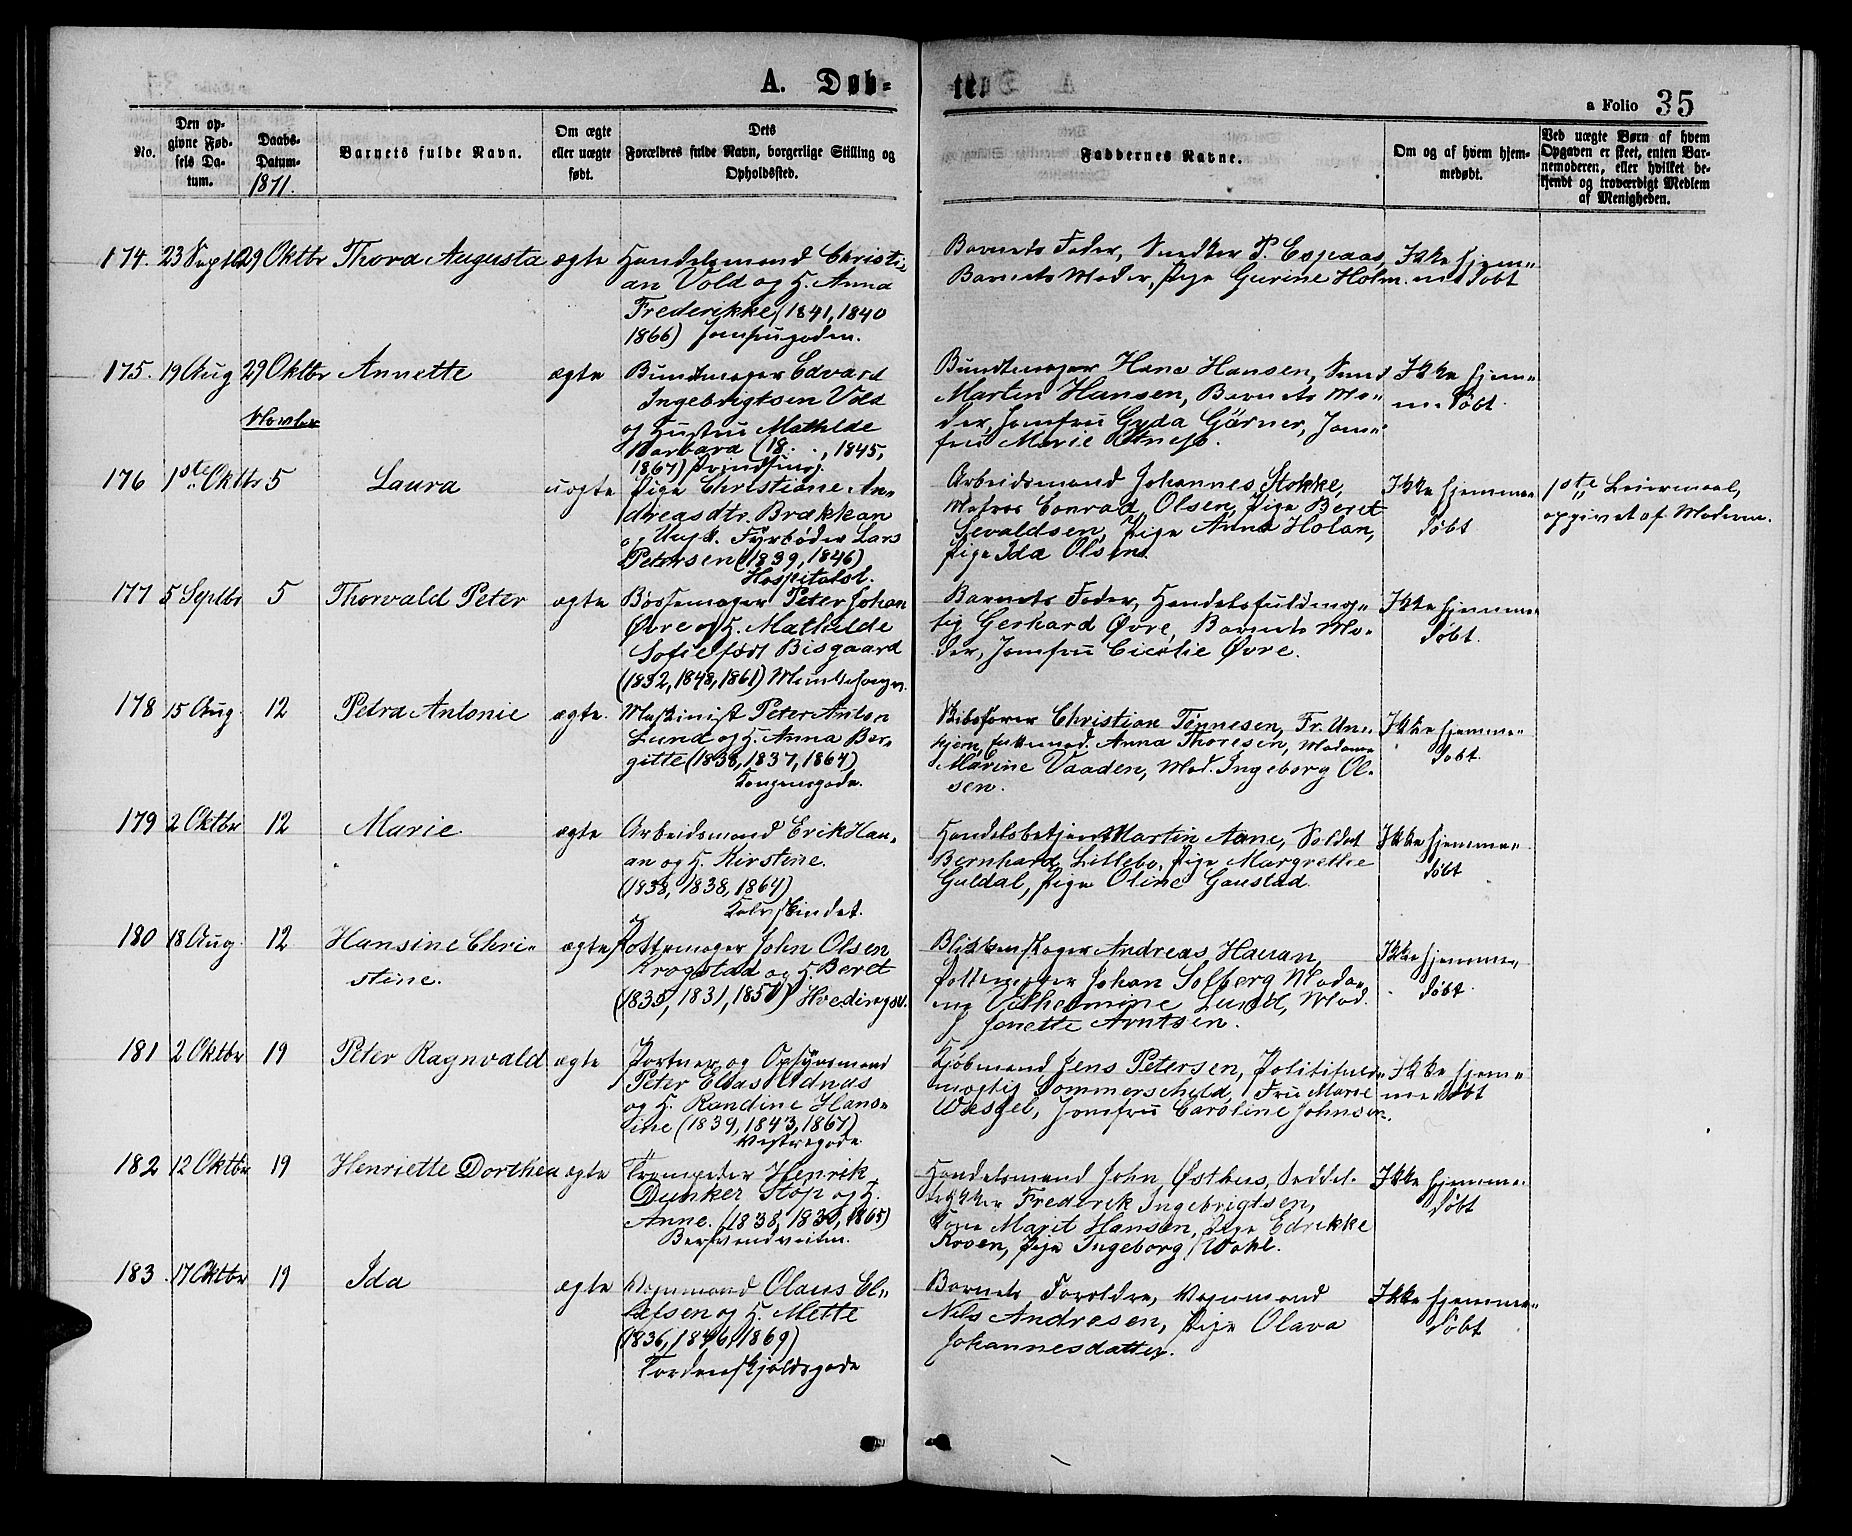 A. Døb-
te.
a Folio 35
No.
Den op-
givne Fød-
sels Da-
tum.
Daabs-
Datum.
1871.
Barnets fulde Navn.
Om ægte
eller uægte
født.
Dets
Forældres fulde Navn, borgerlige Stilling og
Opholdssted.
Faddernes Navne.
Om og af hvem hjem-
medøbt.
Ved uægte Børn af hvem
Opgaven er skeet, enten Bar-
nemoderen, eller hvilket be-
kjendt og troværdigt Medlem
af Menigheden.
174. 23 Septbr 29 Oktbr Thora Augusta ægte Handelsmand Christi-
an Vold og H. Anna
Frederikke (1841, 1840
1866) Jomfrugaden.
Barnets Fader, Snedker P. Espaas,
Barnets Moder, Pige Gurine Holm.
Ikke hjem-
medøbt
175. 19 Aug 29 Oktbr Annette ægte Bundtmager Edvard
Ingebrigtsen Vold
og Hustru Mathilde
Barbara (18 . . , 1845,
1867)
Bundtmager Hans Hansen, Svend
Martin Hansen, Barnets Mo-
der, Jomfru Gyda Gärner, Jom-
fru Marie
Ikke hjem-
medøbt.
Novbr
176 1ste Oktbr 5 Laura uægte Pige Christiane An-
dreasdtr. Brækkan
og Ungk. Fyrbøder Lars
Petersen (1839, 1846)
Hospitalsl.
Arbeidsmand Johannes Stokke,
Matros Conrad Olsen, Pige Beret
Sevaldsen, Pige Anna Holan,
Pige Ida Olsen
Ikke hjemme-
døbt
1ste Leiermaal,
opgivet af Moderen.
177 5 Septbr 5 Thorvald Peter ægte Bøssemager Peter Johan
Øvre og H. Mathilde
Sofie født Bisgaard
(1832, 1848, 1861)
Barnets Fader, Handelsfuldmæg-
tig Gerhard Øvre, Barnets Mo-
der, Jomfru Cicelie Øvre.
Ikke hjemme-
døbt.
178 15 Aug. 12 Petra Antonie ægte. Maskinist Peter Anton
Lund og H. Anna Ber-
gitte (1838, 1837, 1864)
Kongensgade.
Skibsfører Christian Tønnesen, Fr. Un-
Anna Thoresen, Madame
Marine Vaaden, Mad. Ingeborg Ol-
sen.
Ikke hjemme-
døbt.
179 2 Oktbr 12 Marie ægte Arbeidsmand Erik Hau-
an og H. Kirstine.
(1838, 1838, 1864)
Kalvskindet.
Handelsbetjent Martin Aune, Soldat
Bernhard Lillebo, Pige Margrethe
Guldal, Pige Oline Gaustad.
Ikke hjemme-
døbt
180 18 Aug. 12 Hansine Chri-
stine.
ægte Pottemager John Olsen
Krogstad og H. Beret
(1835, 1831, 1857)
Blikkenslager Andreas Hauan,
Pottemager Johan Solberg, Mada-
me Vilhelmine Lund, Mad.
Jonette Arntsen.
Ikke hjemme-
døbt.
181 2 Oktbr 19 Peter Ragnvald ægte Portner og Opsynsmand
Peter Elias Adnas
og H. Randine Hans-
ine (1839, 1843, 1867)
Vestregade
Kjøbmand Jens Petersen, Politifuld-
mægtig Sommerschild, Fru Marie
Wessel, Jomfru Caroline Johnsen.
Ikke hjem-
medøbt
182 12 Oktbr 19 Henriette Dorthea ægte Trompeter Henrik
Dunker Stop og H.
Anne. (1838, 1830, 1865)
Handelsmand John Østhus, Seddel-
trykker Frederik Ingebrigtsen,
Kone Marit Hansen, Pige Edrikke
Roven, Pige Ingeborg Wahl.
Ikke hjemme-
døbt
183. 17 Oktbr 19 Ida ægte Vognmand Olaus El-
lefsen og H. Mette
(1836, 1846, 1869)
Tordenskjoldsgade
Barnets Forældre, Vognmand
Nils Andresen, Pige Olava
Johannesdatter.
Ikke hjemme-
døbt